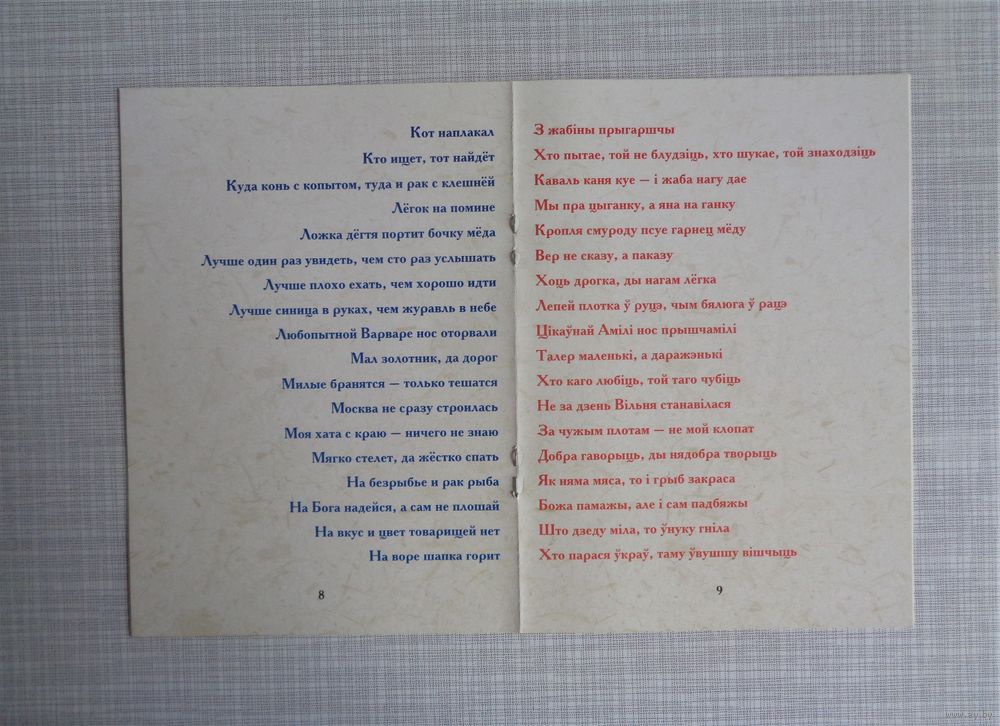 Кот наплакал
Кто ищет, тот найдёт
Куда конь с копытом, туда и рак с клешнёй
Лёгок на помине
Ложка дёгтя портит бочку мёда
Лучше один раз увидеть, чем сто раз услышать
Лучше плохо ехать, чем хорошо идти
Лучше синица в руках, чем журавль в небе
Любопытной Варваре нос оторвали
Мал золотник, да дорог
Милые бранятся — только тешатся
Москва не сразу строилась
Моя хата с краю — ничего не знаю
Мягко стелет, да жёстко спать
На безрыбье и рак рыба
На Бога надейся, а сам не плошай
На вкус и цвет товарищей нет
На воре шапка горит
8
З жабіны прыгаршчы
Хто пытае, той не блудзіць, хто шукае, той знаходзіць
Каваль каня куе — і жаба нагу дае
Мы пра цыганку, а яна на ганку
Кропля смуроду псуе гарнец мёду
Вер не сказу, а паказу
Хоць дрогка, ды нагам лёгка
Лепей плотка ў руцэ, чым бялюга ў рацэ
Цікаўнай Амілі нос прышчамілі
Талер маленькі, а даражэнькі
Хто каго любіць, той таго чубіць
Не за дзень Вільня станавілася
За чужым плотам — не мой клопат
Добра гаворыць, ды нядобра творыць
Як няма мяса, то і грыб закраса
Божа памажы, але і сам падбяжы
Што дзеду міла, то ўнуку гніла
Хто парася ўкраў, таму ўвушшу вішчыць
9
www.ay.by